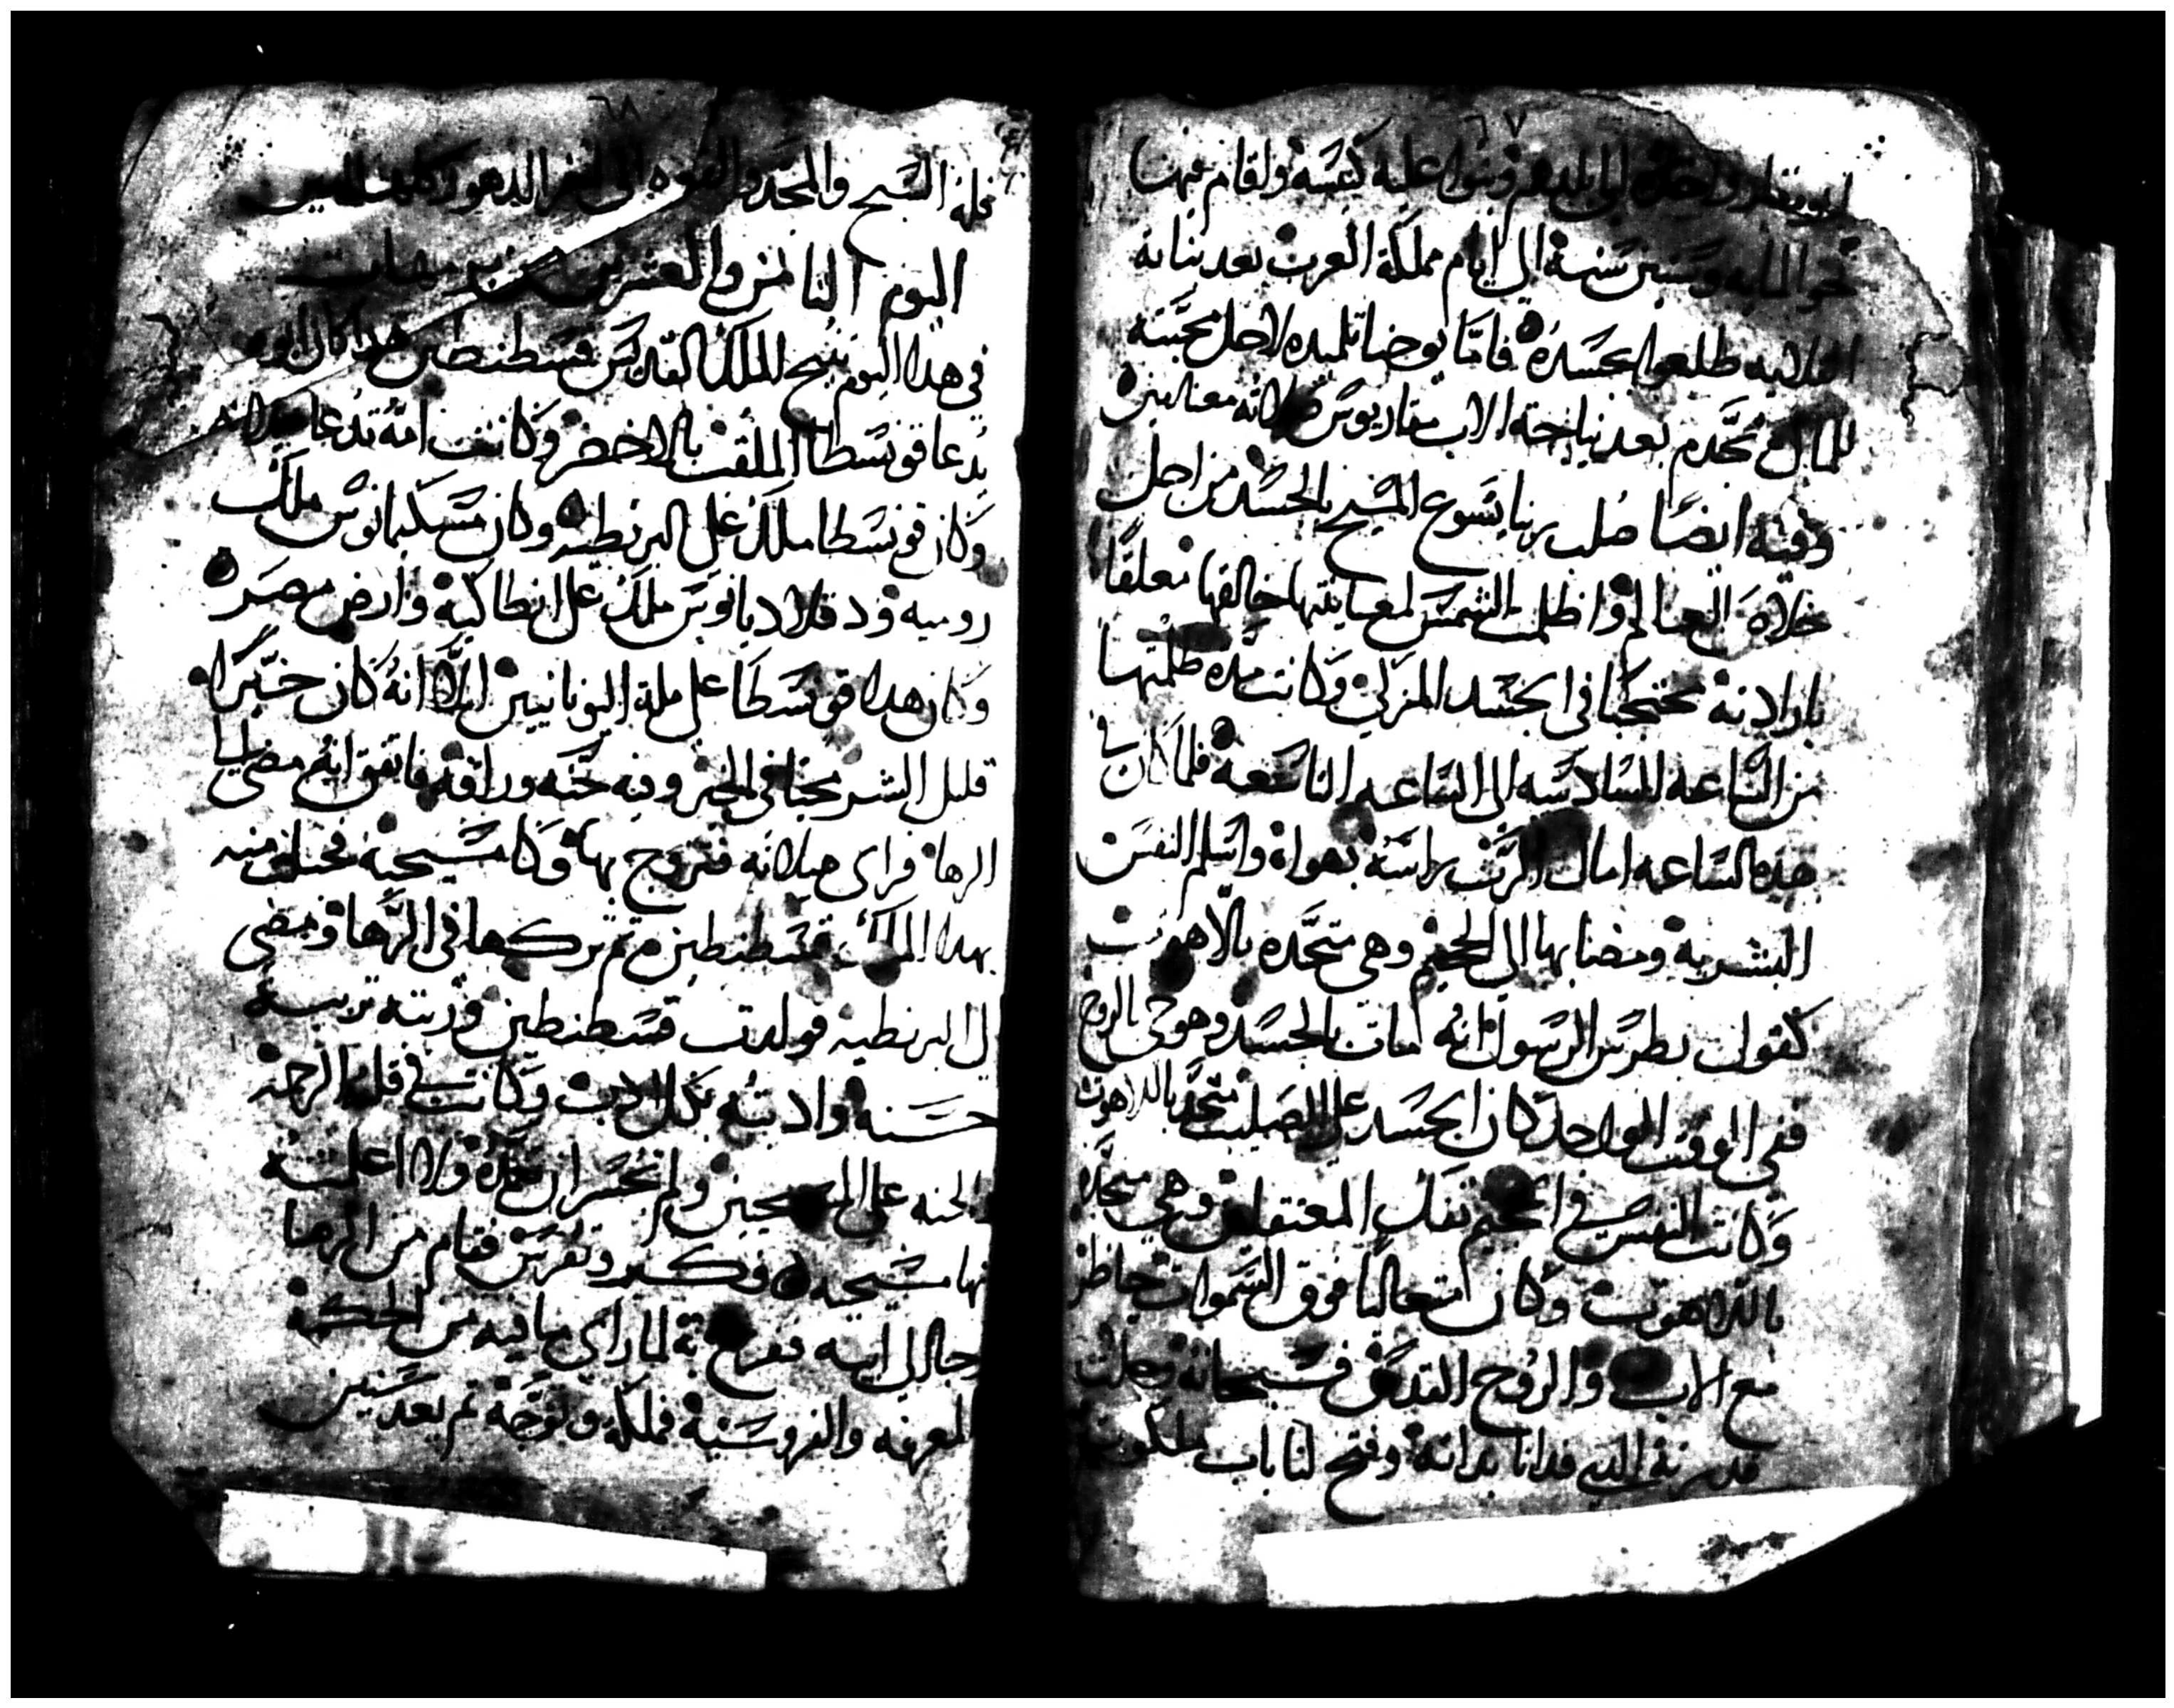 ٦٧
الى بلدهم وبنوا عليه كنيسة واقام فيها
نحو المايه وستين سنة الى ايام مملكة العرب بعد بنايه
القلاليه طلعوا بجسده فاما يوحنا تلميده لاجل محبته
للمال تجدم بعد نياحة الاب مقاريوس لانه
وفيه ايضًا صُلب ربنا يسوع المسيح بالجسد من اجل
خلاص العالم واظلمت الشمس لمعاينتها خالقها معلقًا
بارادته محتجبًا فى الجسد المنزلي وكانت مدة ظلمتها
من الساعه السادسه الى الساعه التاسعه فلما كان في
هذه الساعه امال الرب براسه بهواه واسلم النفس
البشريه ومضا بها الى الجحيم وهى متحده بالاهوت
كقول بطرس الرسول انه امات بالجسد وهو حى بالروح
ففى الوقت الواحد كان الجسد على الصليب متحد باللاهوت
وكانت النفس في الجحيم تفك المعتقلين وهي متحده
باللاهوت وكان متعاليًا فوق السموات حاظر
مع الاب والروح القدس فسبحانه وجلت
قدرته الدى فدانا بداته وفتح لنا باب ملكوته
٦٨
فله التسبيح والمجد والقوه الى اخر الدهور كلها امين
اليوم الثامن والعشرين من برمهات
في هدا اليوم تنيح الملك القديس قسطنطين هدا كان ابوه
يُدعا قونسطا الملقب بالاخضر وكانت امه تُدعا هيلانه
وكان قونسطا ملك على البرنطيه وكان مسكيمانوس ملك
روميه ودقلاديانوس ملك على انطاكيه وارض مصر
وكان هدا قونسطا على ملة اليونانيين الا انه كان خيرًا
قليل الشر محبًا فى الخير وفيه حنه ورافه فاتفق انه مضى ليا
الرها فراى هيلانه فتزوج بها وكا مسيحيه فحبلت منه
بهدا الملك قسطنطين ثم تركها فى الرها ومضى
الى البرنطيه فولدت قسطنطين وربته تربية
حسنه وادبته بكل ادب وكانت في قلبه الرحمه
والحنه على المسيحيين ولم تجسر ان تعمده ولا اعلمته
انها مسيحيه فكبر وتفرس فقام من الرها
وجا الى ابيه ففرح به لما راى ما فيه من الحكمه
المعرفه والفروسيه فملكه وتوجه ثم بعد سنين